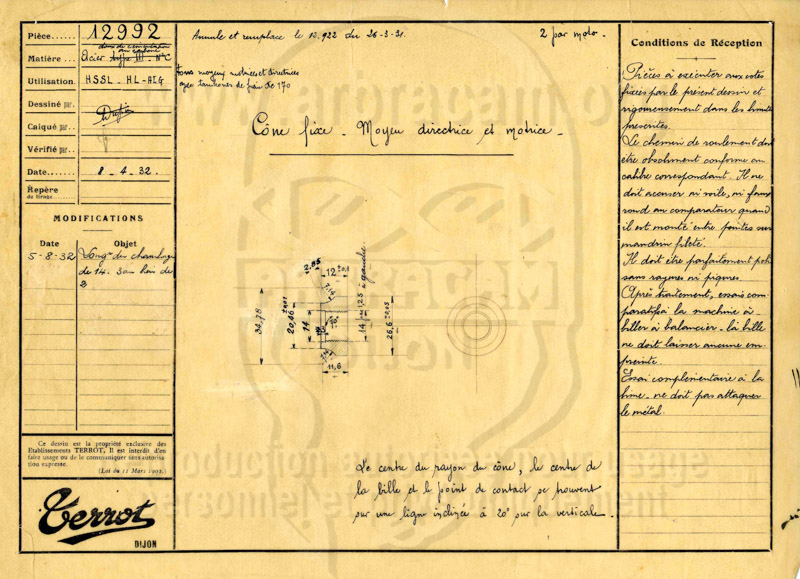 Pièce...... 12992
dans de cémentation
au carbone
Matière.... Acier type III - N°C
Utilisation. HSSL - HL - HLG
Dessiné par.
Calqué par..
Vérifié par..
Date....... 8 - 4 - 32.
Repère
du tirage
MODIFICATIONS
Date Objet
5-8-32 Long^r des chambrages
de 14. 3 au lieu de
2
Ce dessin est la propriété exclusive des
Etablissements TERROT, Il est interdit d'en
faire usage ou de le communiquer sans autorisa-
tion expresse.
(Loi du 11 Mars 1902.)
Terrot
DIJON
Annule et remplace le 12.922 du 26-3-31.
2 par moto.
tous moyeux motrices et directrices
avec tambours de frein de 170
Cône fixe - Moyeu directrice et motrice -
2,05
12 ±0,1
14 pas 1,25 à gauche
34,78
20,46 ±0,03
14
14
26,6 ±0,05
11,6
Le centre du rayon du cône, le centre de
la bille et le point de contact se trouvent
sur une ligne inclinée à 20° sur la verticale.
Conditions de Réception
Pièces à exécuter aux cotes
fixées par le présent dessin et
rigoureusement dans les limites
prescrites.
Le chemin de roulement doit
être absolument conforme au
calibre correspondant. Il ne
doit accuser ni voile, ni faux
rond au comparateur quand
il est monté entre pointes sur
mandrin fileté.
Il doit être parfaitement poli
sans rayures ni piqures.
Après traitement, essais com-
paratifs à la machine à
biller à balancier - la bille
ne doit laisser aucune em-
preinte.
Essai complémentaire à la
lime - ne doit pas attaquer
le métal.